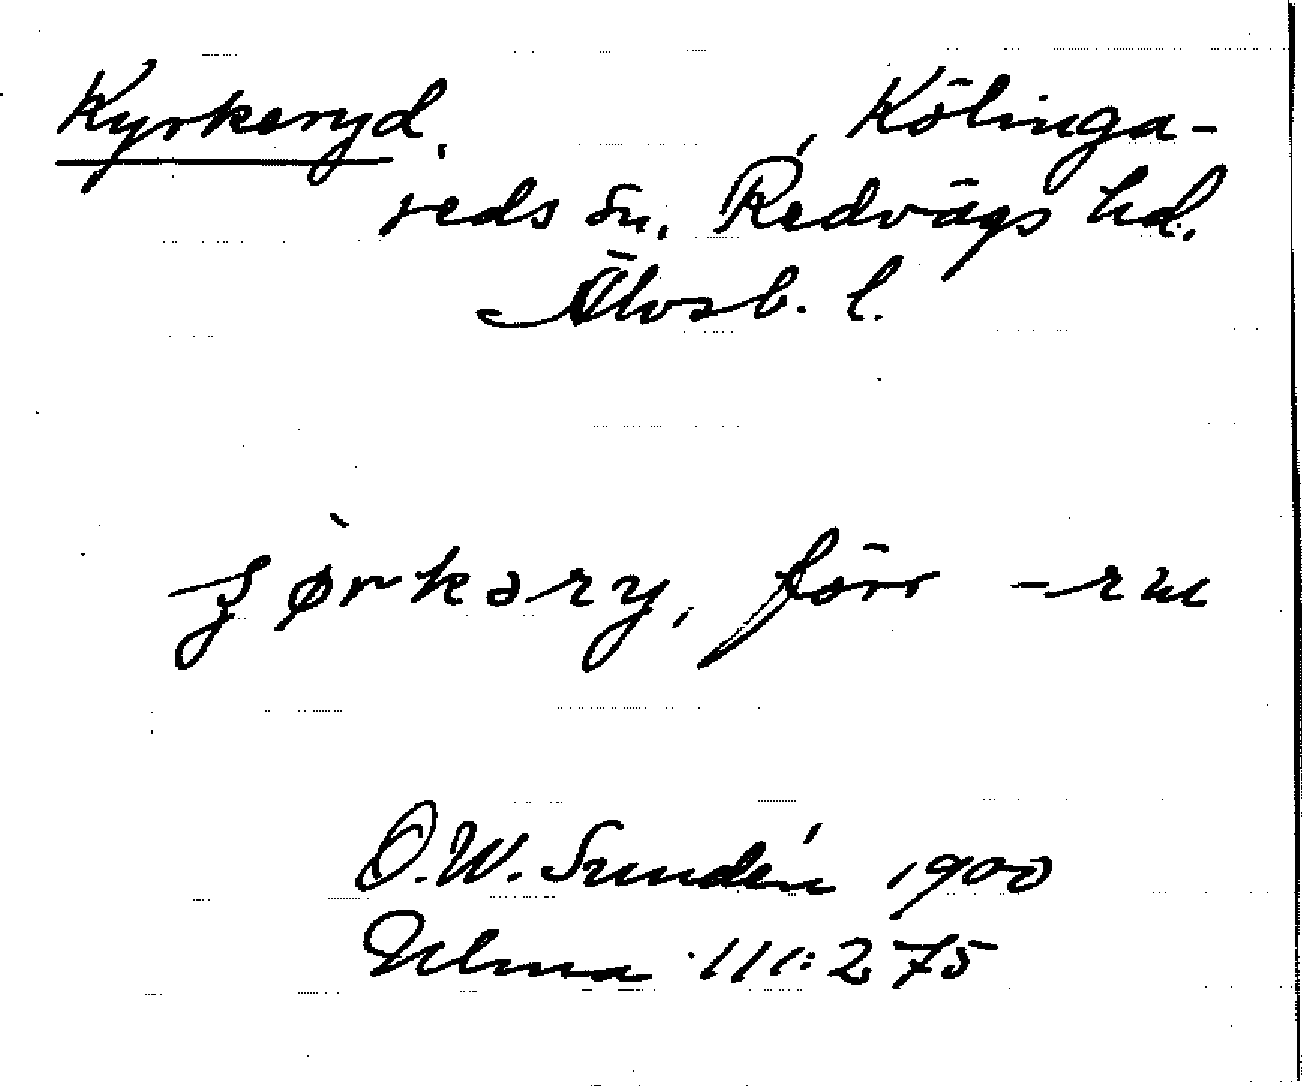 Kyrkeryd, Kölinga-
reds sn, Redvägs hd.
Älvsb. l.
förr
O.W. Sundén 1900
Ulma 111:275